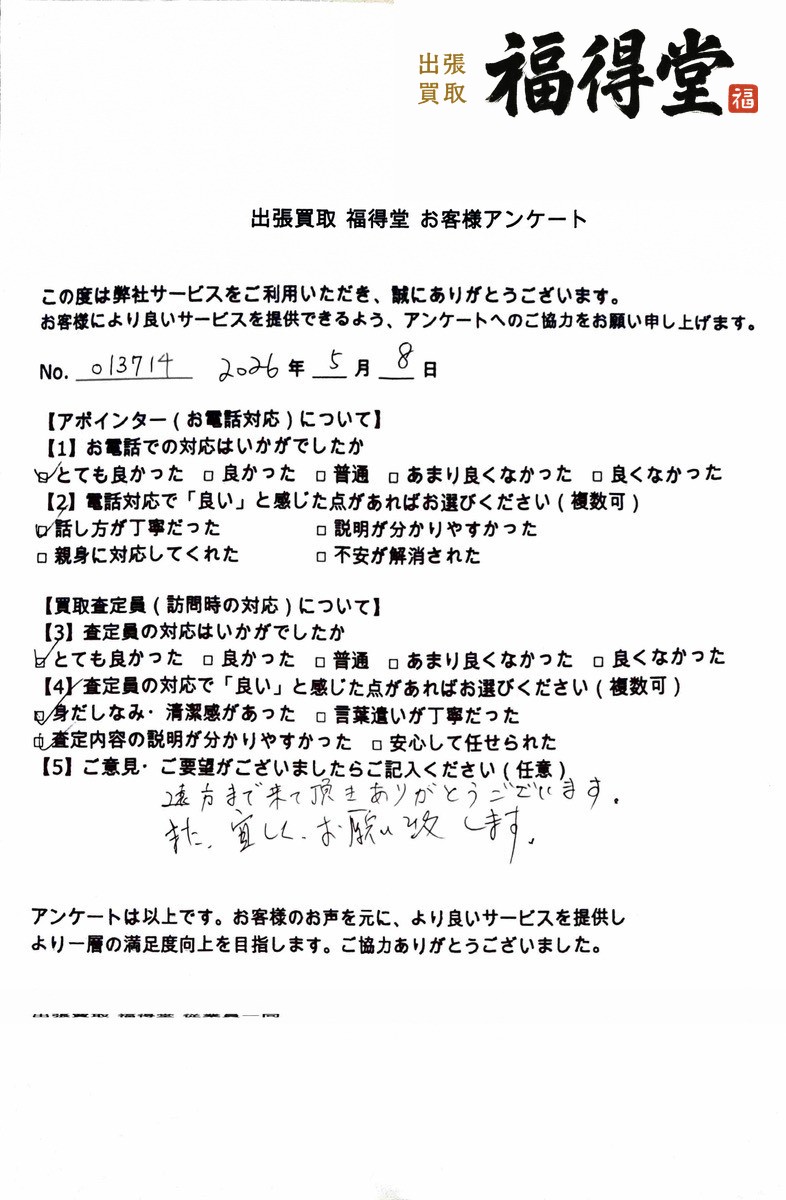 出張
買取
福得堂
福
出張買取 福得堂 お客様アンケート
この度は弊社サービスをご利用いただき、誠にありがとうございます。
お客様により良いサービスを提供できるよう、アンケートへのご協力をお願い申し上げます。
No. 013714 2026年 5月 8日
【アポインター(お電話対応)について】
【1】お電話での対応はいかがでしたか
☑とても良かった □良かった □普通 □あまり良くなかった □良くなかった
【2】電話対応で「良い」と感じた点があればお選びください(複数可)
☑話し方が丁寧だった □説明が分かりやすかった
□親身に対応してくれた □不安が解消された
【買取査定員(訪問時の対応)について】
【3】査定員の対応はいかがでしたか
☑とても良かった □良かった □普通 □あまり良くなかった □良くなかった
【4】査定員の対応で「良い」と感じた点があればお選びください(複数可)
☑身だしなみ・清潔感があった □言葉遣いが丁寧だった
☑査定内容の説明が分かりやすかった □安心して任せられた
【5】ご意見・ご要望がございましたらご記入ください(任意)
遠方まで来て頂きありがとうございます。
また、宜しく、お願い致します。
アンケートは以上です。お客様のお声を元に、より良いサービスを提供し
より一層の満足度向上を目指します。ご協力ありがとうございました。
出張買取 福得堂 従業員一同